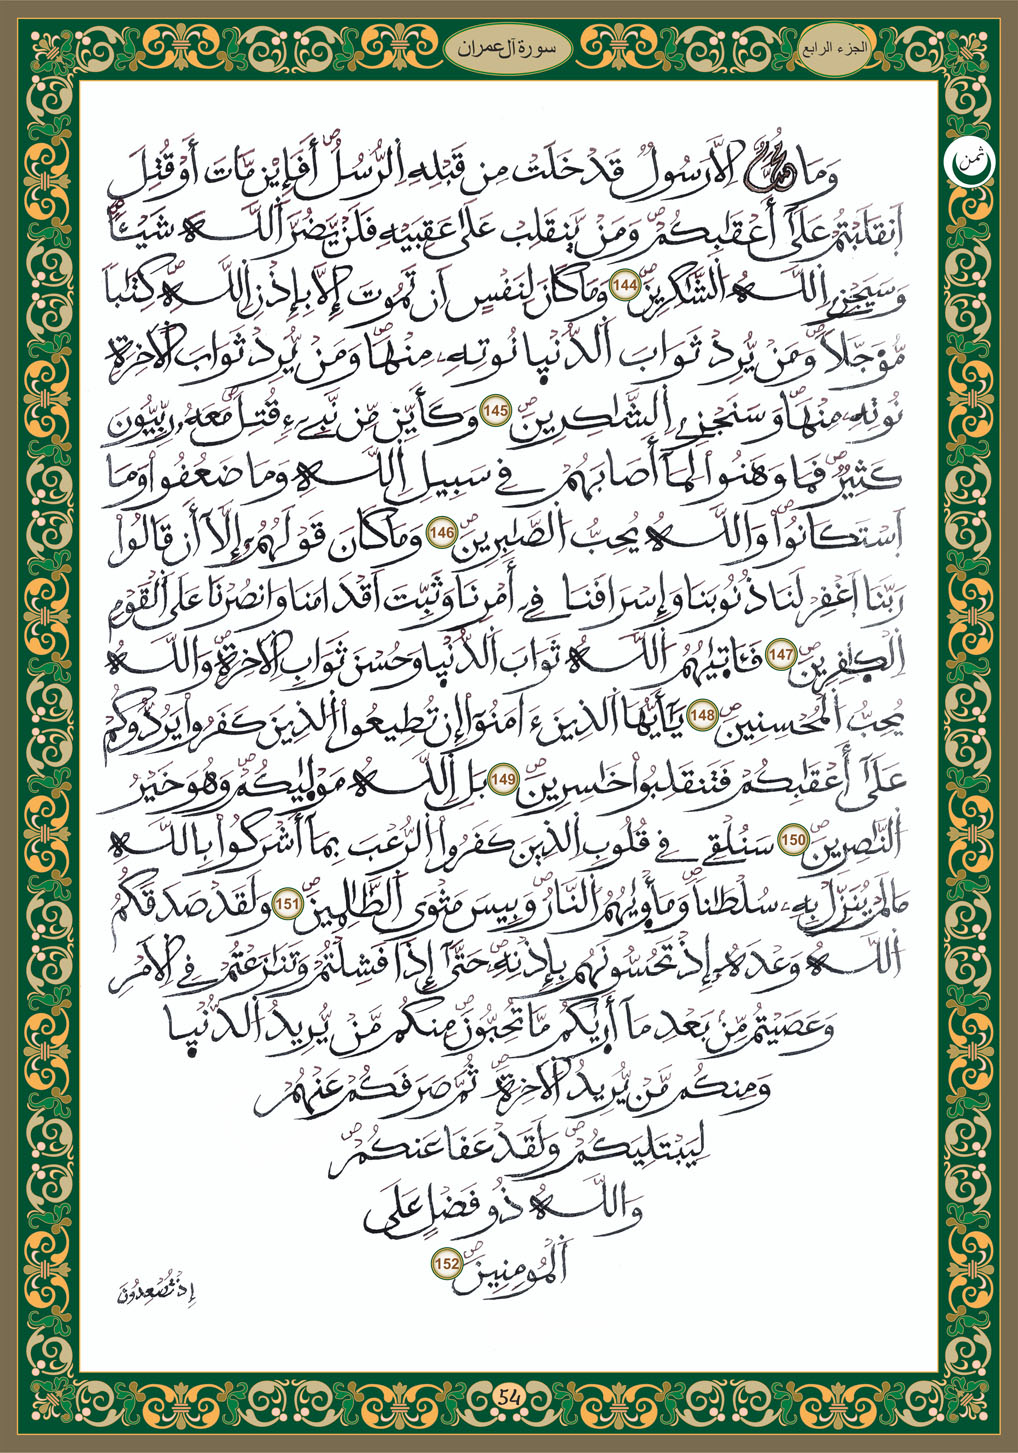 سورة آل عمران
الجزء الرابع
ثمن
وَمَا مُحَمَّدٌ اِلَّا رَسُولٌ قَدْ خَلَتْ مِن قَبْلِهِ اِلرُّسُلُ أَفَإِيْن مَّاتَ أَوْ قُتِلَ
اَنقَلَبْتُمْ عَلَىٰٓ أَعْقَٰبِكُمْ وَمَنْ يَّنقَلِبْ عَلَىٰ عَقِبَيْهِ فَلَنْ يَّضُرَّ اَللَّهَ شَيْـٔاً
وَسَيَجْزِے اِللَّهُ اُلشَّٰكِرِينَ 144 وَمَا كَانَ لِنَفْسٍ اَن تَمُوتَ إِلَّا بِإِذْنِ اِللَّهِ كِتَٰباً
مُّؤَجَّلاً وَمَنْ يُّرِدْ ثَوَابَ اَلدُّنْيِا نُوتِهِۦ مِنْهَا وَمَنْ يُّرِدْ ثَوَابَ اَلَاخِرَةِ
نُوتِهِۦ مِنْهَا وَسَنَجْزِے اِلشَّٰكِرِينَ 145 وَكَأَيِّن مِّن نَّبِےٓءٍ قُتِلَ مَعَهُۥ رِبِّيُّونَ
كَثِيرٌ فَمَا وَهَنُواْ لِمَآ أَصَابَهُمْ فِے سَبِيلِ اِللَّهِ وَمَا ضَعُفُواْ وَمَا
اَسْتَكَانُواْ وَاللَّهُ يُحِبُّ اُلصَّٰبِرِينَ 146 وَمَا كَانَ قَوْلَهُمُۥٓ إِلَّآ أَن قَالُواْ
رَبَّنَا اَغْفِرْ لَنَا ذُنُوبَنَا وَإِسْرَافَنَا فِےٓ أَمْرِنَا وَثَبِّتَ اَقْدَامَنَا وَانصُرْنَا عَلَى اَلْقَوْمِ
اِلْكٰ۪فِرِينَ 147 فَـَٔات۪يٰهُمُ اُللَّهُ ثَوَابَ اَلدُّنْيِا وَحُسْنَ ثَوَابِ اِلَاخِرَةِ وَاللَّهُ
يُحِبُّ اُلْمُحْسِنِينَ 148 يَٰٓأَيُّهَا اَلذِينَ ءَامَنُوٓاْ إِن تُطِيعُواْ اُلذِينَ كَفَرُواْ يَرُدُّوكُمْ
عَلَىٰٓ أَعْقَٰبِكُمْ فَتَنقَلِبُواْ خَٰسِرِينَ 149 بَلِ اِللَّهُ مَوْل۪يٰكُمْ وَهُوَ خَيْرُ
اُلنَّٰصِرِينَ 150 سَنُلْقِے فِے قُلُوبِ اِلذِينَ كَفَرُواْ اُلرُّعْبَ بِمَآ أَشْرَكُواْ بِاللَّهِ
مَا لَمْ يُنَزِّلْ بِهِۦ سُلْطَٰناً وَمَأْو۪يٰهُمُ اُلنَّارُ وَبِيسَ مَثْوَى اَلظَّٰلِمِينَ 151 وَلَقَدْ صَدَقَكُمُ
اُللَّهُ وَعْدَهُۥٓ إِذْ تَحُسُّونَهُم بِإِذْنِهِۦ حَتَّىٰٓ إِذَا فَشِلْتُمْ وَتَنَٰزَعْتُمْ فِے اِلَامْرِ
وَعَصَيْتُم مِّنۢ بَعْدِ مَآ أَر۪يٰكُم مَّا تُحِبُّونَ مِنكُم مَّنْ يُّرِيدُ اُلدُّنْيِا
وَمِنكُم مَّنْ يُّرِيدُ اُلَاخِرَةَ ثُمَّ صَرَفَكُمْ عَنْهُمْ
لِيَبْتَلِيَكُمْ وَلَقَدْ عَفَا عَنكُمْ
وَاللَّهُ ذُو فَضْلٍ عَلَى
اَلْمُومِنِينَ 152
إِذْ تُصْعِدُونَ
54